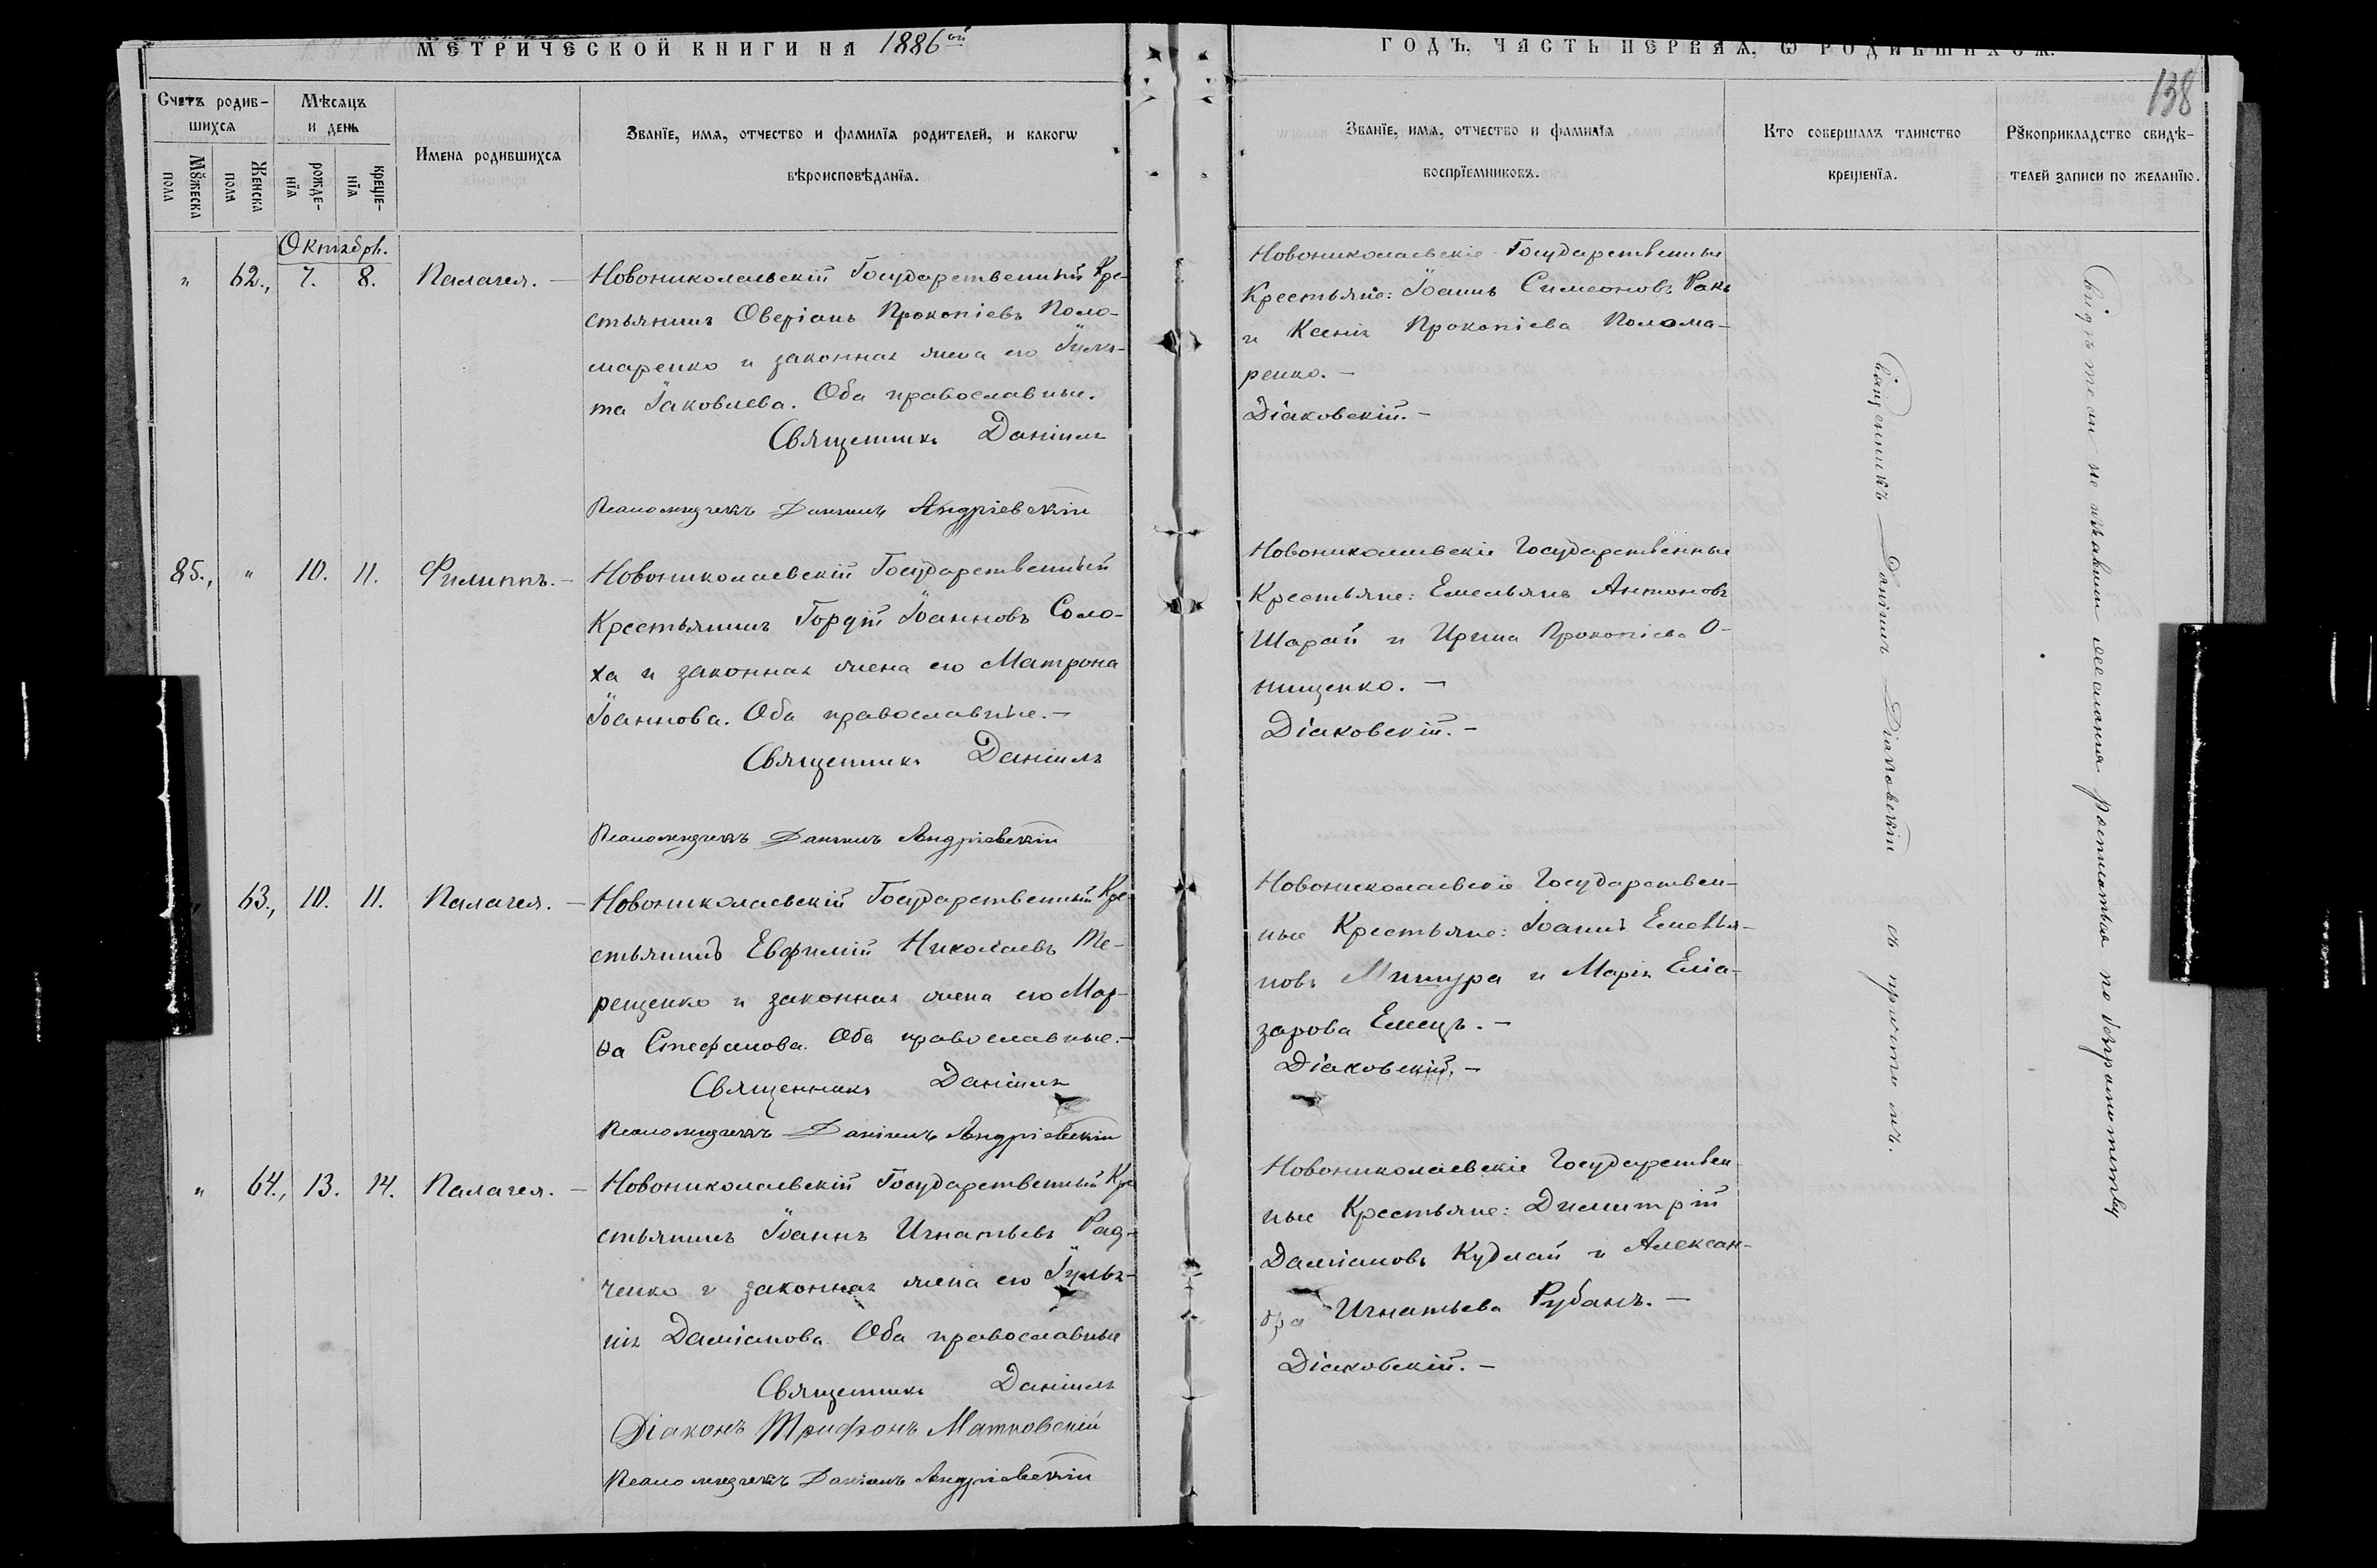 МЕТРИЧЕСКОЙ КНИГИ НА 1886ой
ГОДЪ, ЧАСТЬ ПЕРВАЯ, Ѡ РОДИВШИХСЯ.
138
Счетъ родив-
шихся
Мѣсяцъ
и день
Мꙋжеска
пола
Женска
пола
рожде-
нїя
креще-
нїя
Имена родившихся
Званїе, имя, отчество и фамилїя родителей, и какогѡ
вѣроисповѣданїя.
Званїе, имя, отчество и фамилїя
воспрїемниковъ.
Кто совершалъ таинство
крещенїя.
Рꙋкоприкладство свидѣ-
телей записи по желанїю.
Октябрь.
" 62., 7. 8. Палагея. —
Новониколаевскій Государственный Кре-
стьянинъ Оверіанъ Прокопіевъ Поло-
маренко и законная жена его Іули-
та Іаковлева. Оба православные.
Священникъ Даніилъ
Псаломщикъ Даніилъ Андріевскій
Новониколаевскіе Государственные
Крестьяне: Іоаннъ Симеоновъ Ракъ
и Ксенія Прокопіева Полома-
ренко. —
Діаковскій. —
85., " 10. 11. Филиппъ. —
Новониколаевскій Государственный
Крестьянинъ Гордій Іоанновъ Соло-
ха и законная жена его Матрона
Іоаннова. Оба православные. —
Священникъ Даніилъ
Псаломщикъ Даніилъ Андріевскій
Новониколаевскіе Государственные
Крестьяне: Емельянъ Антоновъ
Шарай и Ирина Прокопіева О-
нищенко. —
Діаковскій. —
" 63., 10. 11. Палагея. —
Новониколаевскій Государственный Кре-
стьянинъ Евфимій Николаевъ Те-
рещенко и законная жена его Мар-
ѳа Стефанова. Оба православные. —
Священникъ Даніилъ
Псаломщикъ Даніилъ Андріевскій
Новониколаевскіе Государствен-
ные Крестьяне: Іоаннъ Емелья-
новъ Мишура и Марія Еліа-
зарова Емецъ. —
Діаковскій. —
" 64., 13. 14. Палагея. —
Новониколаевскій Государственный Кре
стьянинъ Іоаннъ Игнатьевъ Рад-
ченко и законная жена его Іульа-
нія Даміанова. Оба православные
Священникъ Даніилъ
Діаконъ Трифонъ Матковскій
Псаломщикъ Даніилъ Андріевскій
Новониколаевскіе Государствен
ные Крестьяне: Димитрій
Даміановъ Кудлай и Алексан-
дра Игнатьева Рубанъ. —
Діаковскій. —
Священникъ Даніилъ Діаковскій съ причтомъ.
Свидѣтели не изъявили желанія росписаться по безграмотству